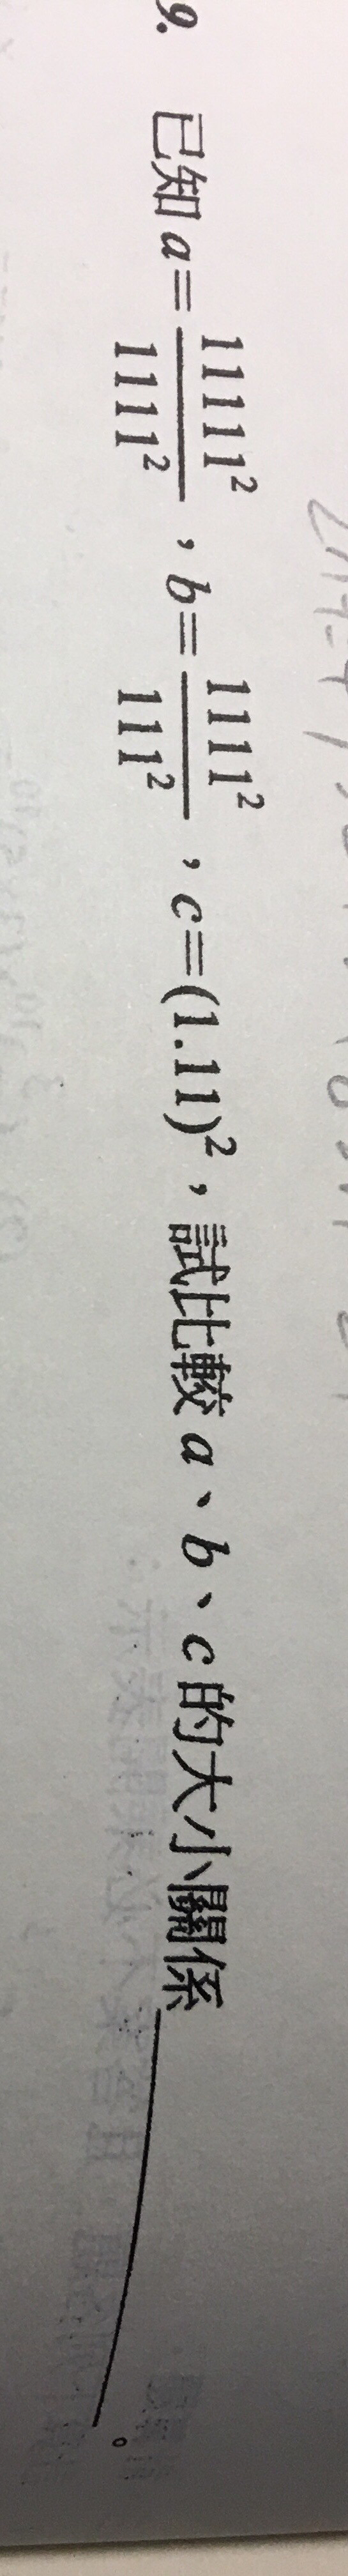 9. 已知 a=11111²/1111²，b=1111²/111²，c=(1.11)²，試比較 a、b、c 的大小關係______。